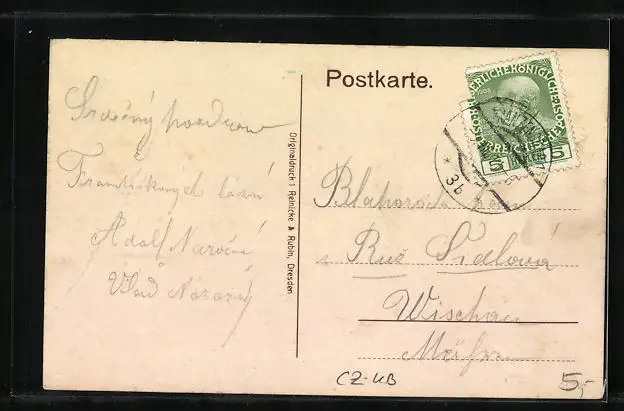 Postkarte.
KAISERLICHE KÖNIGLICHE
ÖSTERREICHISCHE POST
1908
5 5
* 3b
Srdečný pozdrav
Františkových lázní
Adolf
Vlad
Originaldruck v. Reinicke & Rubin, Dresden
Blahorodá
Růž. Šidlová
Wischau
Mähren
CZ-KB
5,-